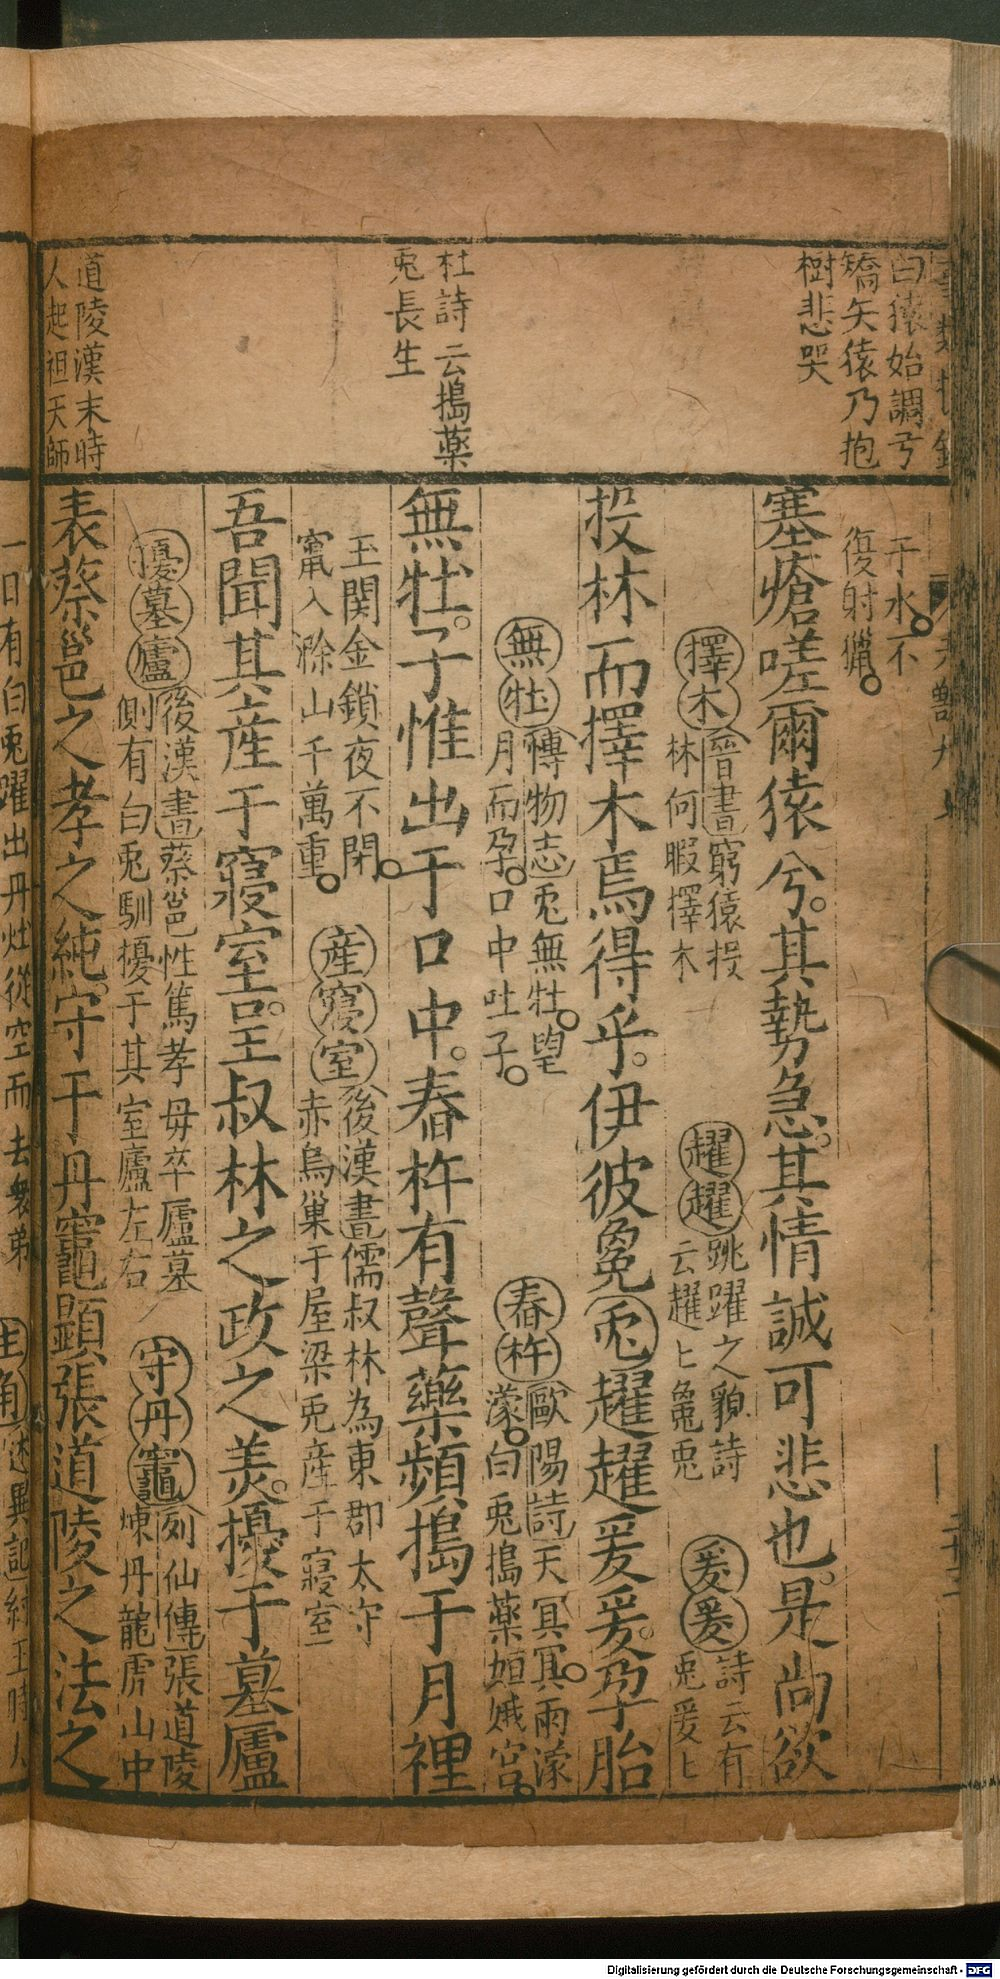 曰猿始調弓
矯矢猿乃抱
樹悲哭
杜詩云搗藥
兎長生
道陵漢末時
人起祖天師
于水不
復射獵
塞瘡嗟爾猿兮其勢急其情誠可悲也是尚欲
擇木晉書窮猿投
林何暇擇木
趯趯跳躍之貌詩
云趯〻毚兎
爰爰詩云有
兎爰〻
投林而擇木焉得乎伊彼毚兎趯趯爰爰孕胎
無牡博物志兎無牡望
月而孕口中吐子
舂杵歐陽詩天冥冥雨濛
濛白兎搗藥姮娥宮
無牡子惟出于口中舂杵有聲藥頻搗于月裡
玉関金鎖夜不閉
竄入滁山千萬重
産寢室後漢書儒叔林為東郡太守
赤烏巢于屋梁兎産于寢室
吾聞其産于寢室言王叔林之政之美擾于墓廬
擾墓廬後漢書蔡邕性篤孝毋卒廬墓
側有白兎馴擾于其室廬左右
守丹竈列仙傳張道陵
煉丹龍虎山中
表蔡邕之孝之純守于丹竈顯張道陵之法之
一日有白兎躍出丹灶從空而去衆弟
生角述異記紂王時人
Digitalisierung gefördert durch die Deutsche Forschungsgemeinschaft - DFG